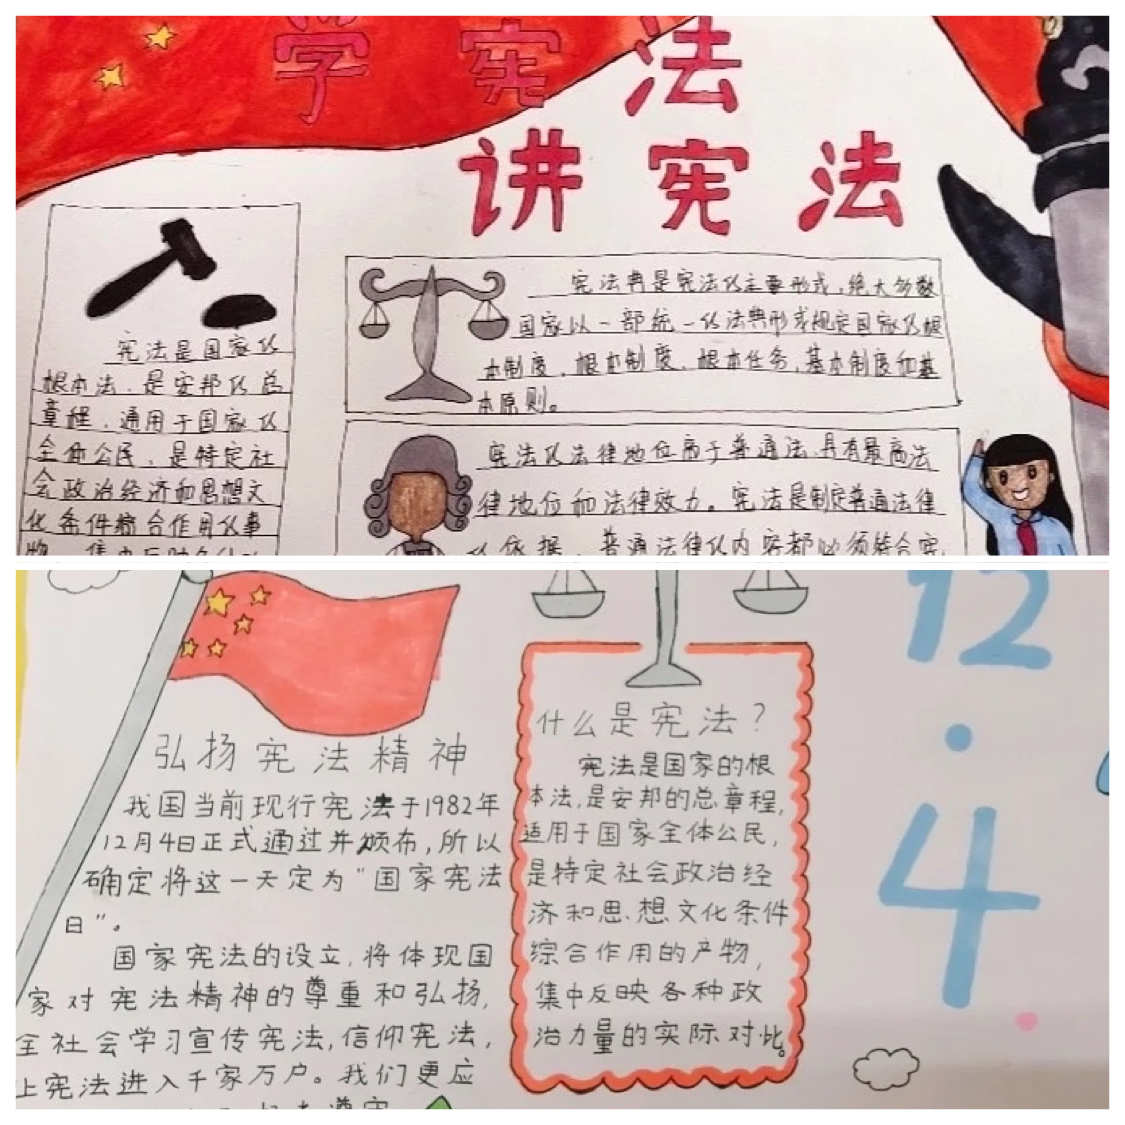 学宪法
讲宪法
宪法是国家的
根本法，是安邦的总
章程，适用于国家的
全体公民，是特定社
会政治经济和思想文
化条件综合作用的产
宪法典是宪法的主要形式，绝大多数
国家以一部统一的法典形式规定国家的根
本制度，根本制度、根本任务，基本制度和基
本原则。
宪法的法律地位高于普通法，具有最高法
律地位和法律效力。宪法是制定普通法律
的依据，普通法律的内容都必须符合宪
弘扬宪法精神
我国当前现行宪法于1982年
12月4日正式通过并颁布，所以
确定将这一天定为"国家宪法
日"。
国家宪法的设立，将体现国
家对宪法精神的尊重和弘扬，
全社会学习宣传宪法，信仰宪法，
上宪法进入千家万户。我们更应
什么是宪法？
宪法是国家的根
本法，是安邦的总章程，
适用于国家全体公民，
是特定社会政治经
济和思想文化条件
综合作用的产物，
集中反映各种政
治力量的实际对比。
12
·
4